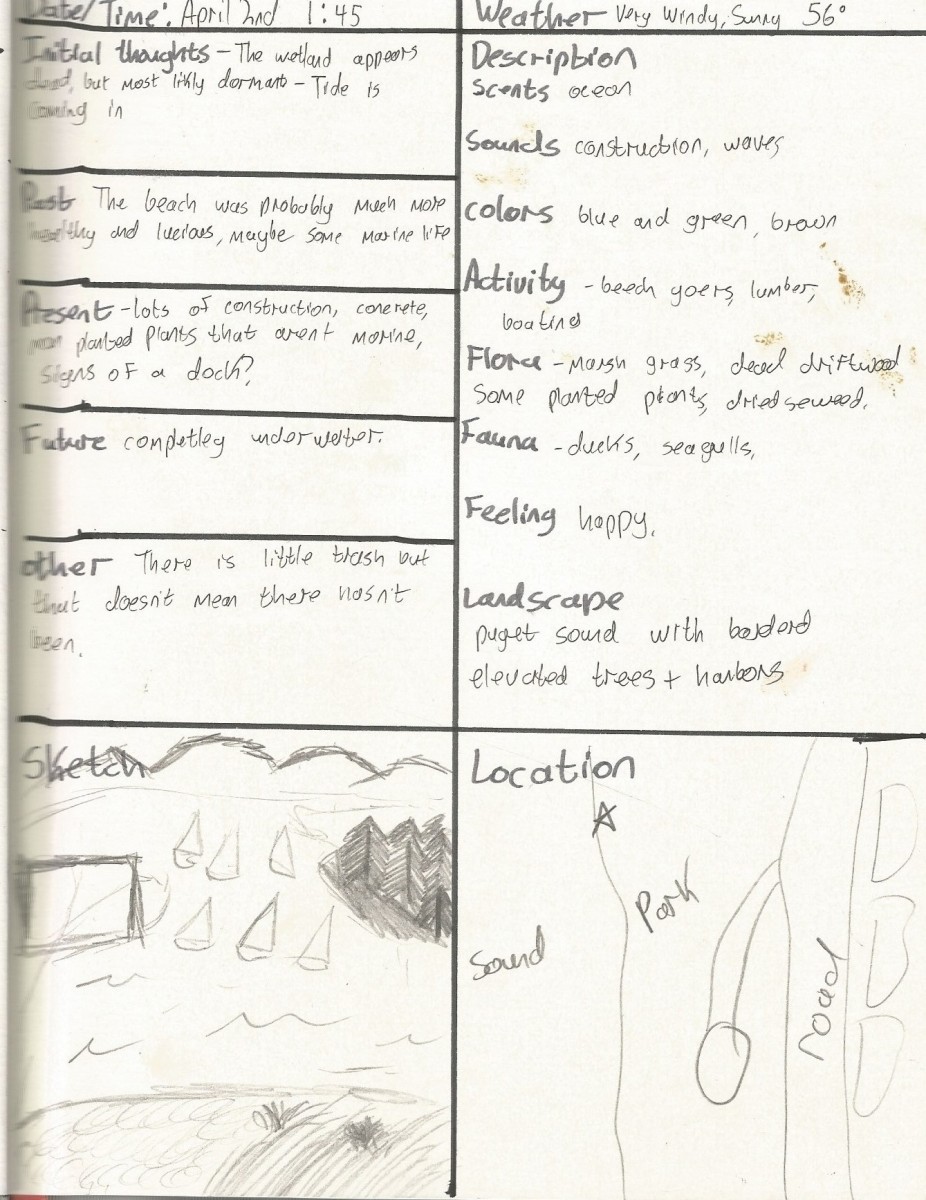 Date/Time: April 2nd 1:45
Weather Very Windy, Sunny 56°
Initial thoughts - The wetland appears
dead, but most likly dormant - Tide is
coming in
Past The beach was probably much more
healthy and lucious, maybe some marine life
Present - lots of construction, concrete,
planted plants that arent marine,
signs of a dock?
Future completley underwater.
other There is little trash but
that doesn't mean there hasn't
been.
Description
Scents ocean
Sounds construction, waves
colors blue and green, brown
Activity - beech goers, lumber,
boating
Flora - marsh grass, dead driftwood
Some planted plants, dried seweed.
Fauna - ducks, seagulls,
Feeling happy.
Landscape
puget sound with borderd
elevated trees + harbors
Sketch
Location
Park
Sound
road